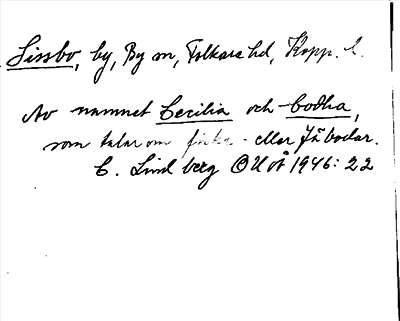 Sissbo, by, By sn, Folkare hd, Kopp. l.
Av namnet Cecilia och bodha,
som talar om fiske- eller fäbodar.
C. Lindberg OUÅ 1946: 22